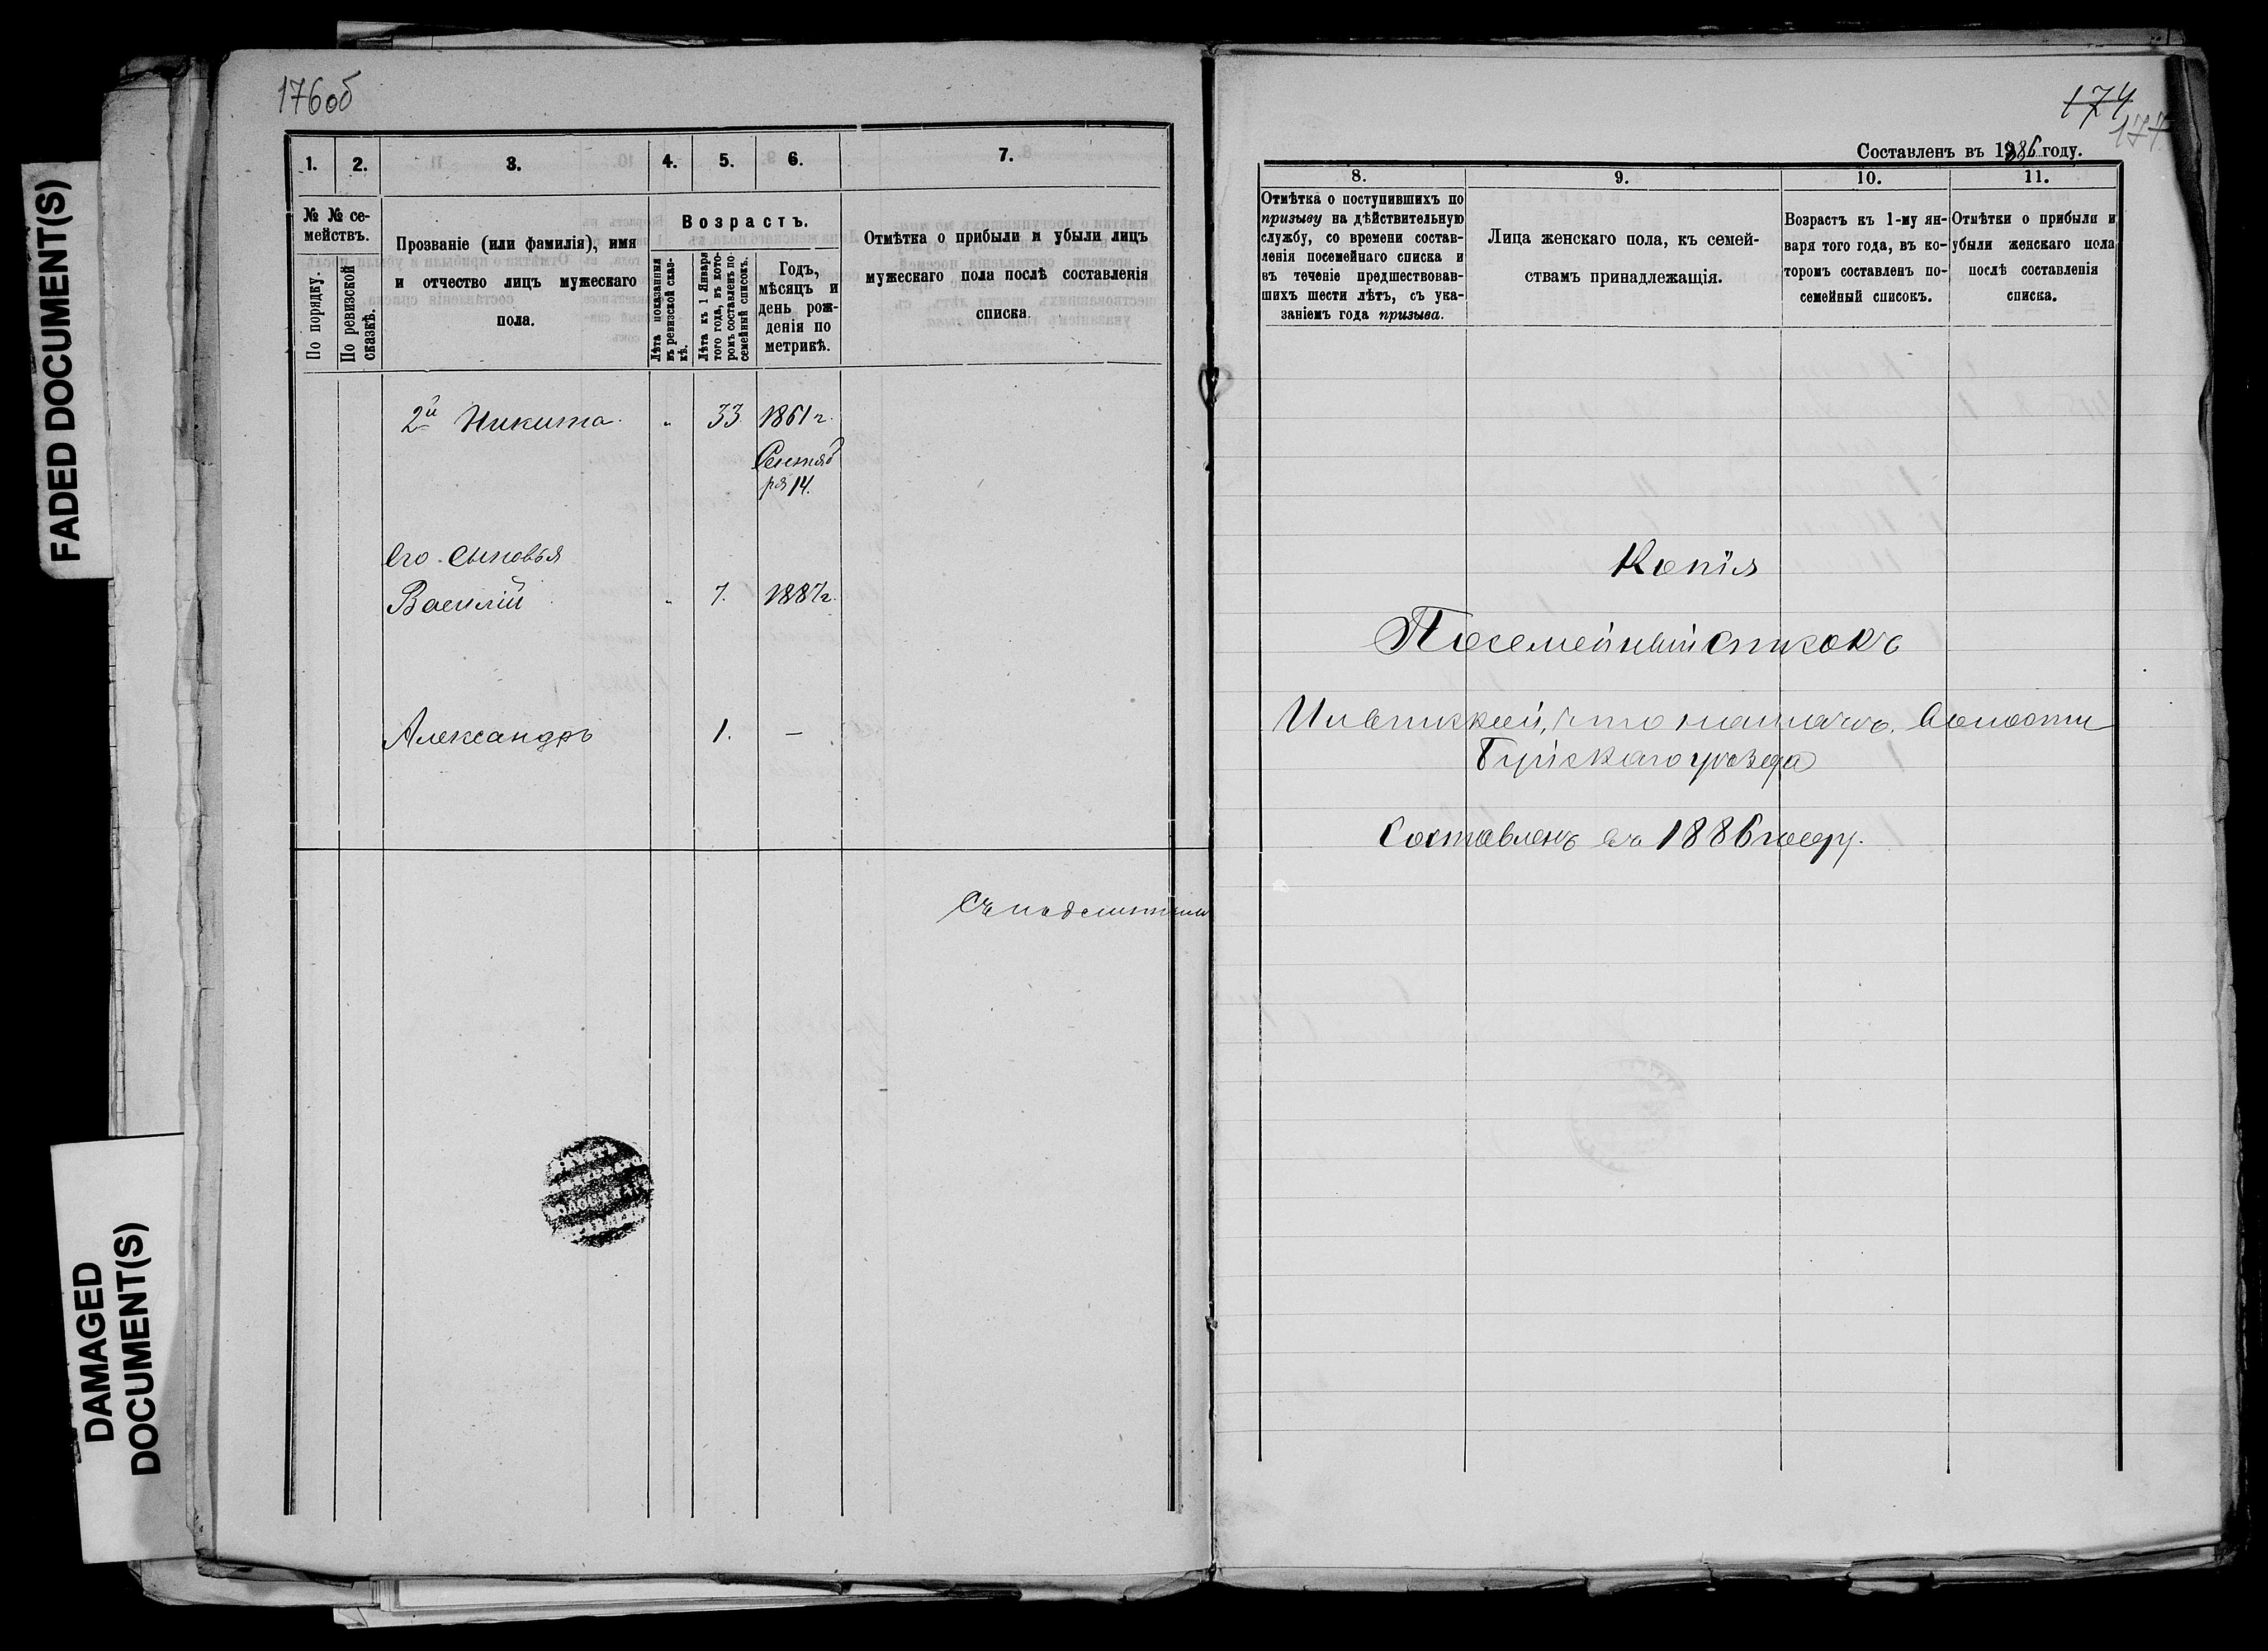 FADED DOCUMENT(S)
DAMAGED
DOCUMENT(S)
176об
1.
2.
3.
4.
5.
6.
7.
№ № се-
мействъ.
По порядку.
По ревизской
сказкѣ.
Прозваніе (или фамилія), имя
и отчество лицъ мужескаго
пола.
Возрастъ.
Лѣта показанныя
въ ревизской сказ-
кѣ.
Лѣта къ 1 Января
того года, въ кото-
ромъ составленъ по-
семейный списокъ.
Годъ,
мѣсяцъ и
день рож-
денія по
метрикѣ.
Отмѣтка о прибыли и убыли лицъ
мужескаго пола послѣ составленія
списка.
2й Никита. " 33 1861 г.
Сентяб
ря 14.
Его сыновья
Василій " 7. 1887 г.
Александръ 1. —
174
177
Составленъ въ 1886 году.
8.
9.
10.
11.
Отмѣтка о поступившихъ по
призыву на дѣйствительную
службу, со времени состав-
ленія посемейнаго списка и
въ теченіе предшествовав-
шихъ шести лѣтъ, съ ука-
заніемъ года призыва.
Лица женскаго пола, къ семей-
ствамъ принадлежащія.
Возрастъ къ 1-му ян-
варя того года, въ ко-
торомъ составленъ по-
семейный списокъ.
Отмѣтки о прибыли и
убыли женскаго пола
послѣ составленія
списка.
Копія
Посемейный списокъ
волости
Буйскаго уѣзда
Составленъ въ 1886 году.